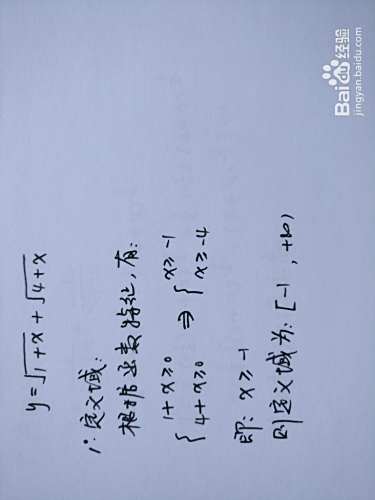 y=√(1+x)+√(4+x)
1°定义域:
根据函数特征,有:
{1+x≥0 ⇒ {x≥-1
{4+x≥0 {x≥-4
即: x≥-1
则定义域为: [-1, +∞)
Baidu经验
jingyan.baidu.com